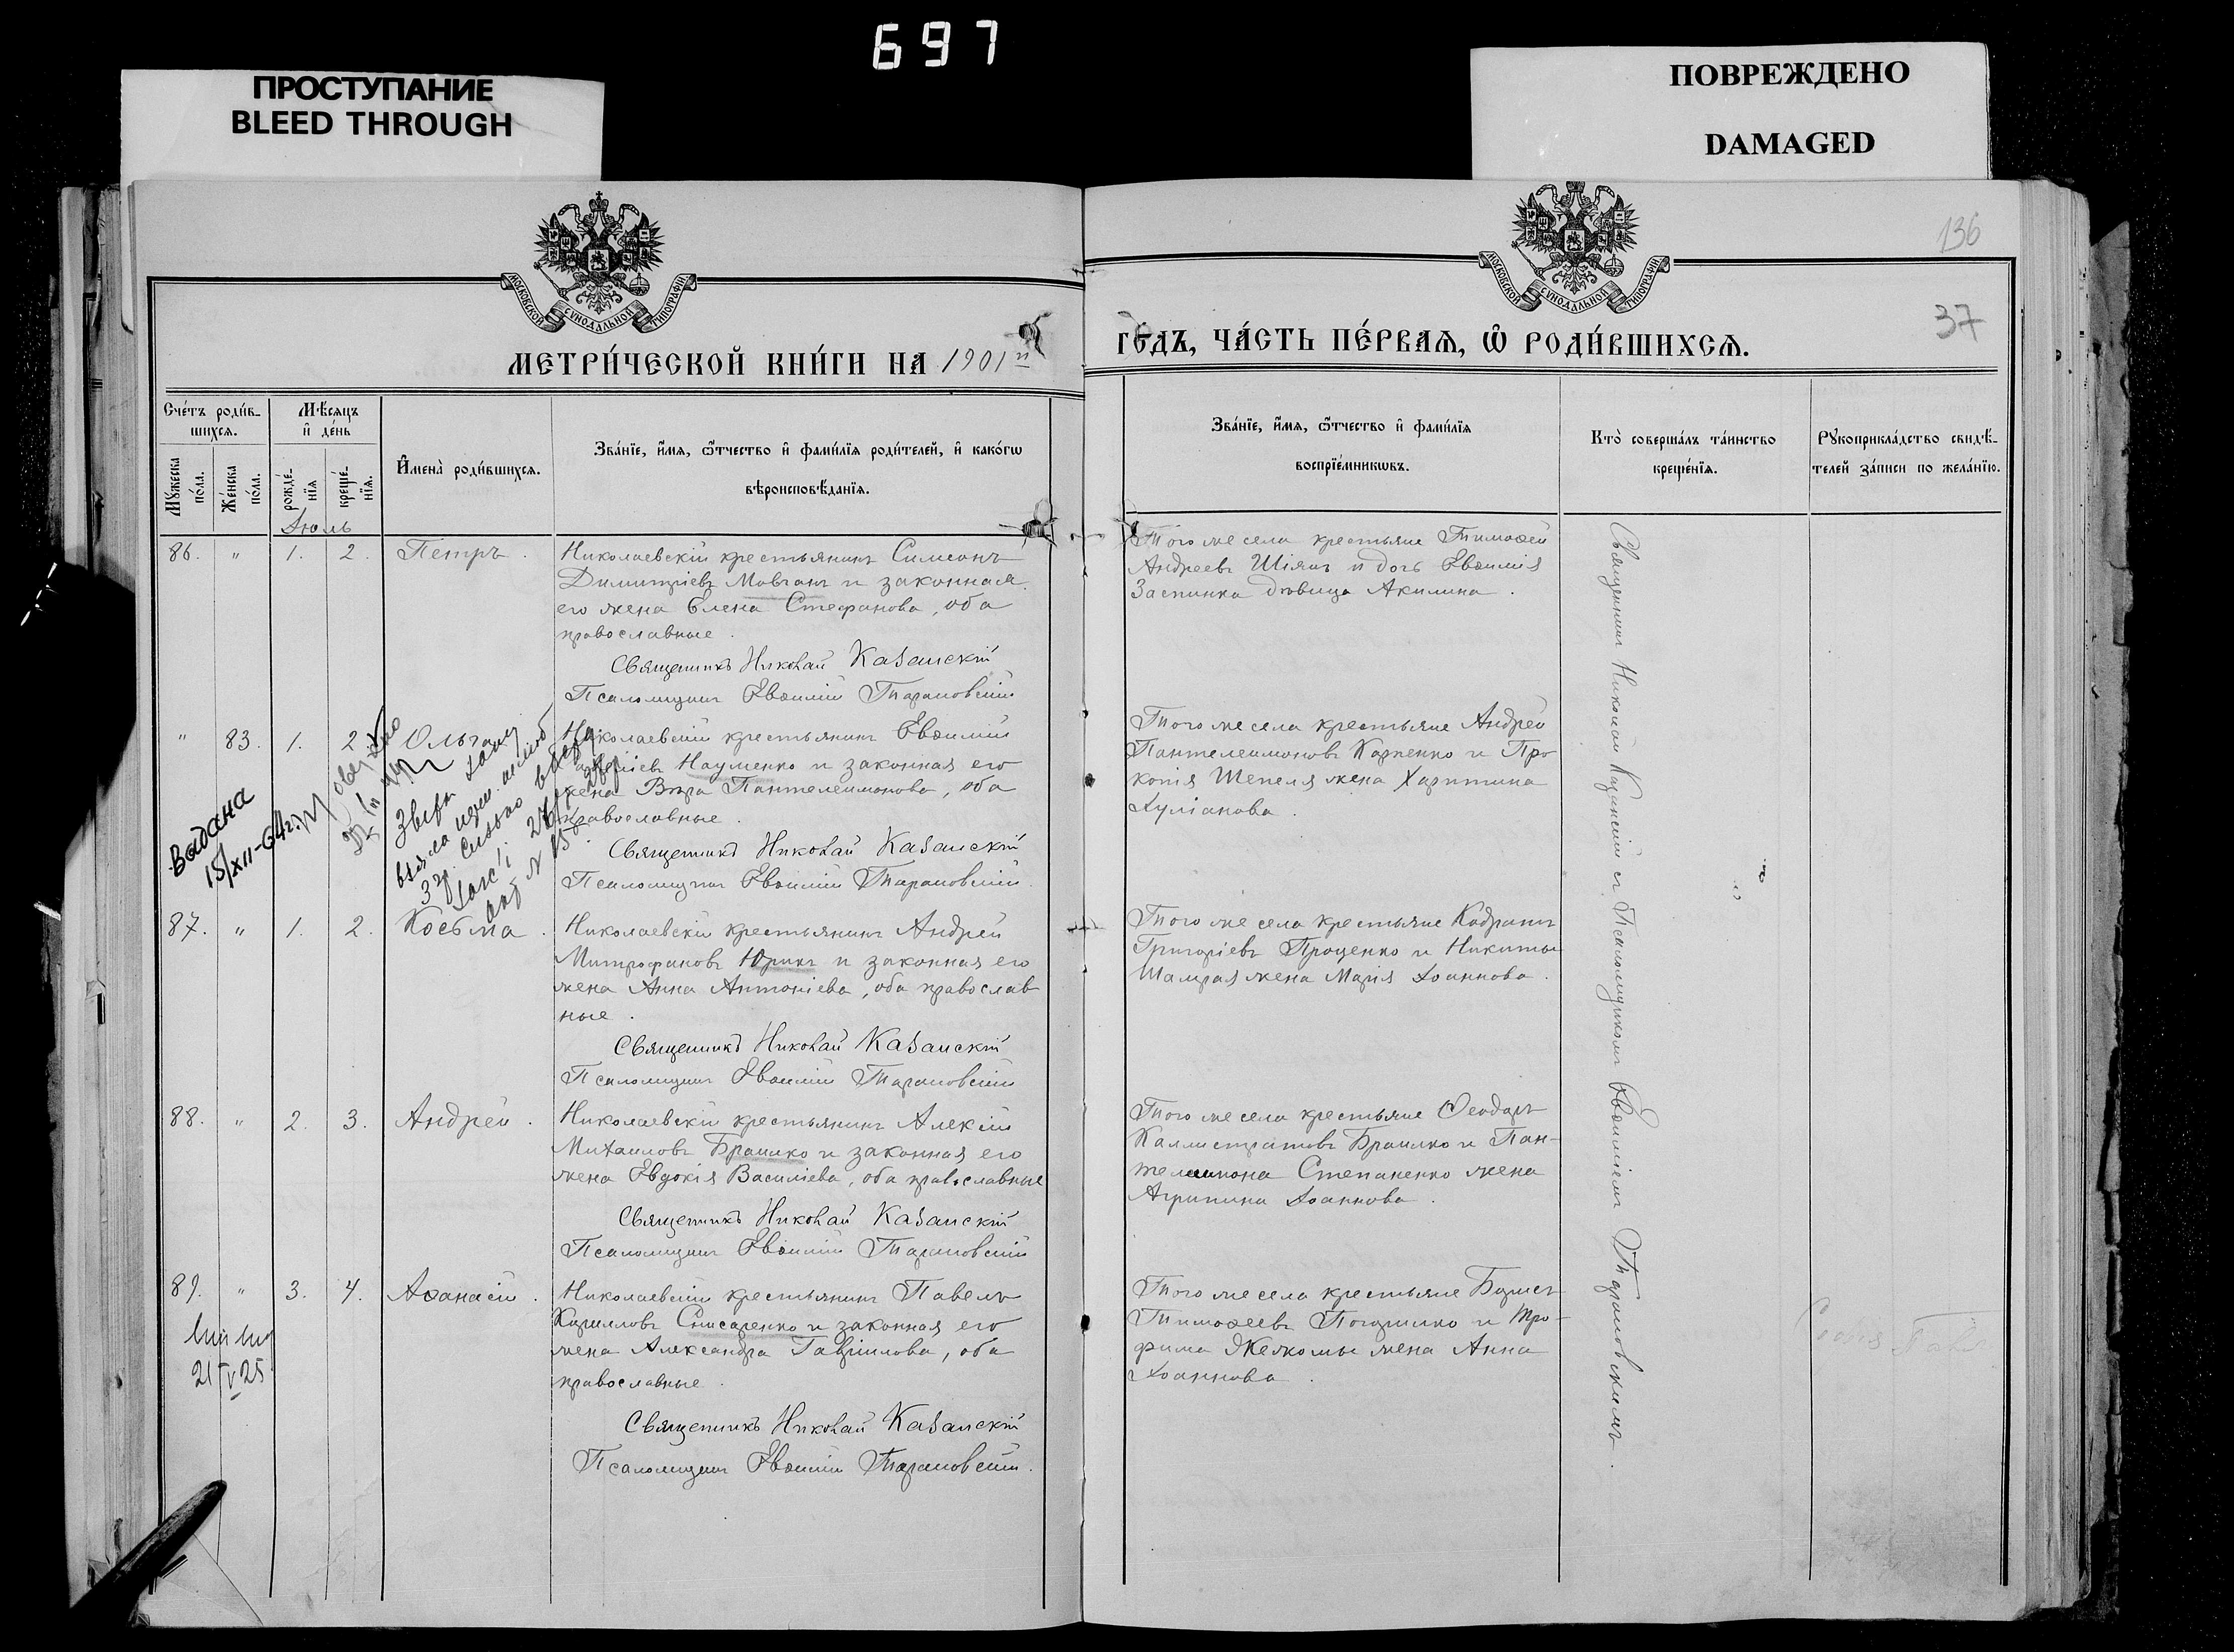 697
ПРОСТУПАНИЕ
BLEED THROUGH
ПОВРЕЖДЕНО
DAMAGED
136
37
МОСКОВСКОЙ СѴНОДАЛЬНОЙ ТИПОГРАФІИ
МОСКОВСКОЙ СѴНОДАЛЬНОЙ ТИПОГРАФІИ
МЕТРИ́ЧЕСКОЙ КНИ́ГИ НА 1901й
ГО́ДЪ, ЧА́СТЬ ПЕ́РВАѦ, Ѡ҆ РОДИ́ВШИХСѦ.
Сче́тъ роди́в-
шихсѧ.
Мꙋжеска по́ла.
Же́нска по́ла.
Мѣ́сѧцъ
и҆ де́нь
рожде́-
нїѧ
креще́-
нїѧ.
И҆мена̀ роди́вшихсѧ.
Зва́нїе, и҆́мѧ, ѻ҆́тчество и҆ фами́лїѧ роди́телей, и҆ како́гѡ
вѣроисповѣ́данїѧ.
Зва́нїе, и҆́мѧ, ѻ҆́тчество и҆ фами́лїѧ
воспрїе́мникѡвъ.
Кто̀ соверша́лъ та́инство
креще́нїѧ.
Рꙋкоприкла́дство свидѣ́-
телей за́писи по жела́нїю.
Іюль
86. " 1. 2. Петръ.
Николаевскій крестьянинъ Симеонъ
Димитріевъ Мовчанъ и законная
его жена Елена Стефанова, оба
православные.
Священникъ Николай Казанскій
Псаломщикъ Евѳимій Тарановскій
Того же села крестьяне Тимоѳей
Андреевъ Шіянъ и дочь Евѳимія
Заспинка дѣвица Акилина.
" 83. 1. 2. Ольга
Николаевскій крестьянинъ Евѳимій
Науменко и законная его
жена Вѣра Пантелеимонова, оба
православные.
Священникъ Николай Казанскій
Псаломщикъ Евѳимій Тарановскій.
Того же села крестьяне Андрей
Пантелеимоновъ Карпенко и Про-
копія Шепеля жена Харитина
Іуліанова.
Видана
15/XII-64г.
87. " 1. 2. Косьма.
Николаевскій крестьянинъ Андрей
Митрофановъ Юринъ и законная его
жена Анна Антоніева, оба православ
ные.
Священникъ Николай Казанскій
Псаломщикъ Евѳимій Тарановскій
Того же села крестьяне Кодратъ
Григоріевъ Проценко и Никиты
Шамрая жена Марія Іоаннова.
88. " 2. 3. Андрей.
Николаевскій крестьянинъ Алексій
Михаиловъ Браилко и законная его
жена Евдокія Василіева, оба православные
Священникъ Николай Казанскій
Псаломщикъ Евѳимій Тарановскій
Того же села крестьяне Ѳеодоръ
Каллистратовъ Браилко и Пан-
телеимона Степаненко жена
Агрипина Іоаннова.
89. " 3. 4. Аѳанасій.
Николаевскій крестьянинъ Павелъ
Кирилловъ Снисаренко и законная его
жена Александра Гавріилова, оба
православные.
Священникъ Николай Казанскій
Псаломщикъ Евѳимій Тарановскій.
Того же села крестьяне Борисъ
Тимоѳеевъ Погорилко и Тро-
фима жена Анна
Іоаннова.
21/V 25
Священникъ Николай Казанскій съ Псаломщикомъ Евѳиміемъ Тарановскимъ.